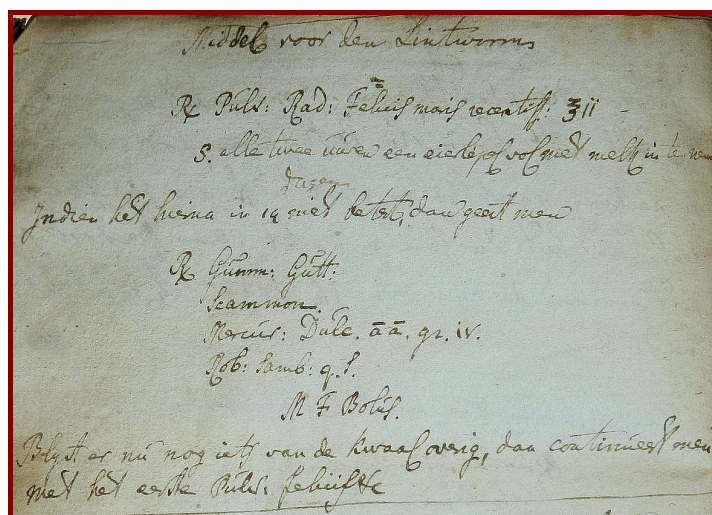 Middel voor den Lintworm
℞ Pulv: Rad: Felicis maris recentiss: ʒii
S. alle twee uuren een eierlepel vol met melk in te nem
dagen
Indien het hierna in 14 niet betert, dan geeft men
℞ Gumm: Gutt:
Scammon.
Mercur: Dulc. āā. gr. iv.
Rob: Samb: q. s.
M F Bolus.
Blyft er nu nog iets van de kwaal overig, dan continueert men
met het eerste Pulv: